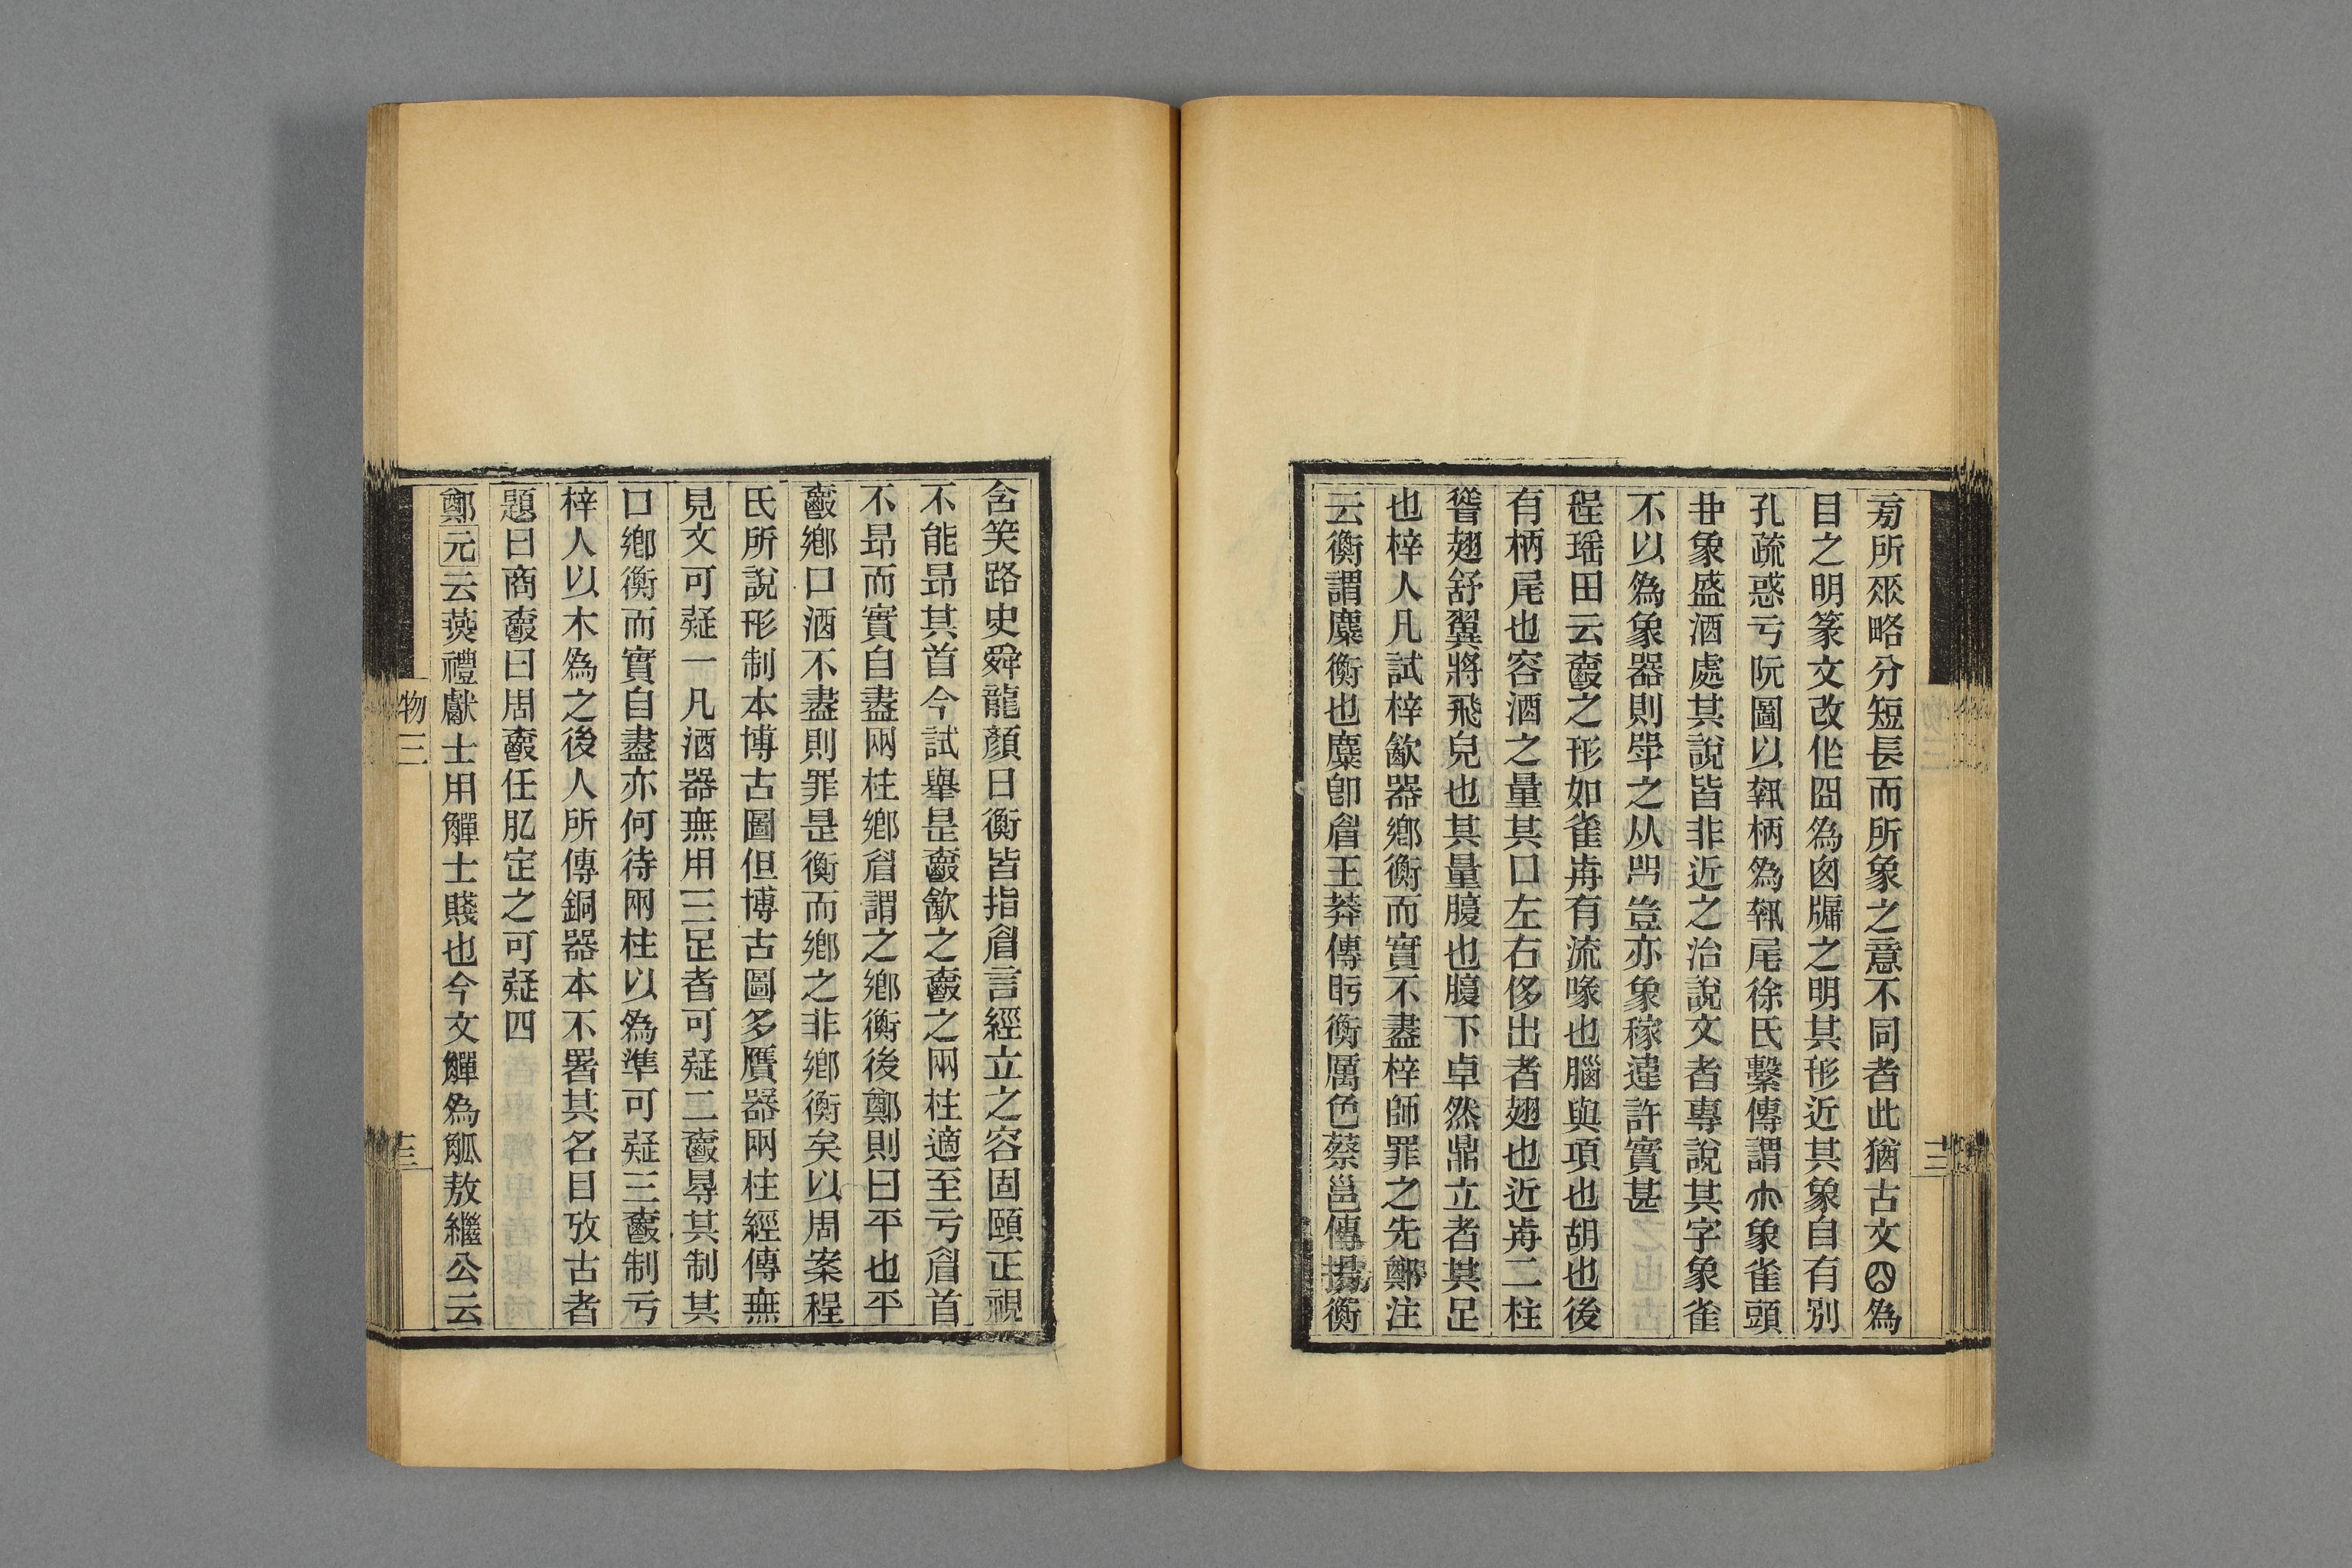 所乑略分短長而所象之意不同者此猶古文為
目之明篆文改作囧為囪牖之明其形近其象自有別
孔疏惑亏阮圖以柄為尾徐氏繫傳謂象雀頭
象盛酒處其說皆非近之治說文者專說其字象雀
不以為象器則斝之从吅豈亦象稼違許實甚
程瑶田云爵之形如雀歬有流喙也腦與項也胡也後
有柄尾也容酒之量其口左右侈出者翅也近歬二柱
聳翅舒翼將飛皃也其量腹也腹下卓然鼎立者其足
也梓人凡試梓飲器鄉衡而實不盡梓師罪之先鄭注
云衡謂麋衡也麋卽睂王莽傳盱衡厲色蔡邕傳揚衡
含笑路史舜龍顏日衡皆指睂言經立之容固頤正視
不能昂其首今試舉是爵飲之爵之兩柱適至亏睂首
不昂而實自盡兩柱鄉睂謂之鄉衡後鄭則曰平也平
爵鄉口酒不盡則罪是衡而鄉之非鄉衡矣以周案程
氏所說形制本博古圖但博古圖多贋器兩柱經傳無
見文可疑一凡酒器無用三足者可疑二爵尋其制其
口鄉衡而實自盡亦何待兩柱以為準可疑三爵制亏
梓人以木為之後人所傳銅器本不署其名目攷古者
題曰商爵曰周爵任肊定之可疑四
鄭元云燕禮獻士用觶士賤也今文觶為觚敖繼公云
物三